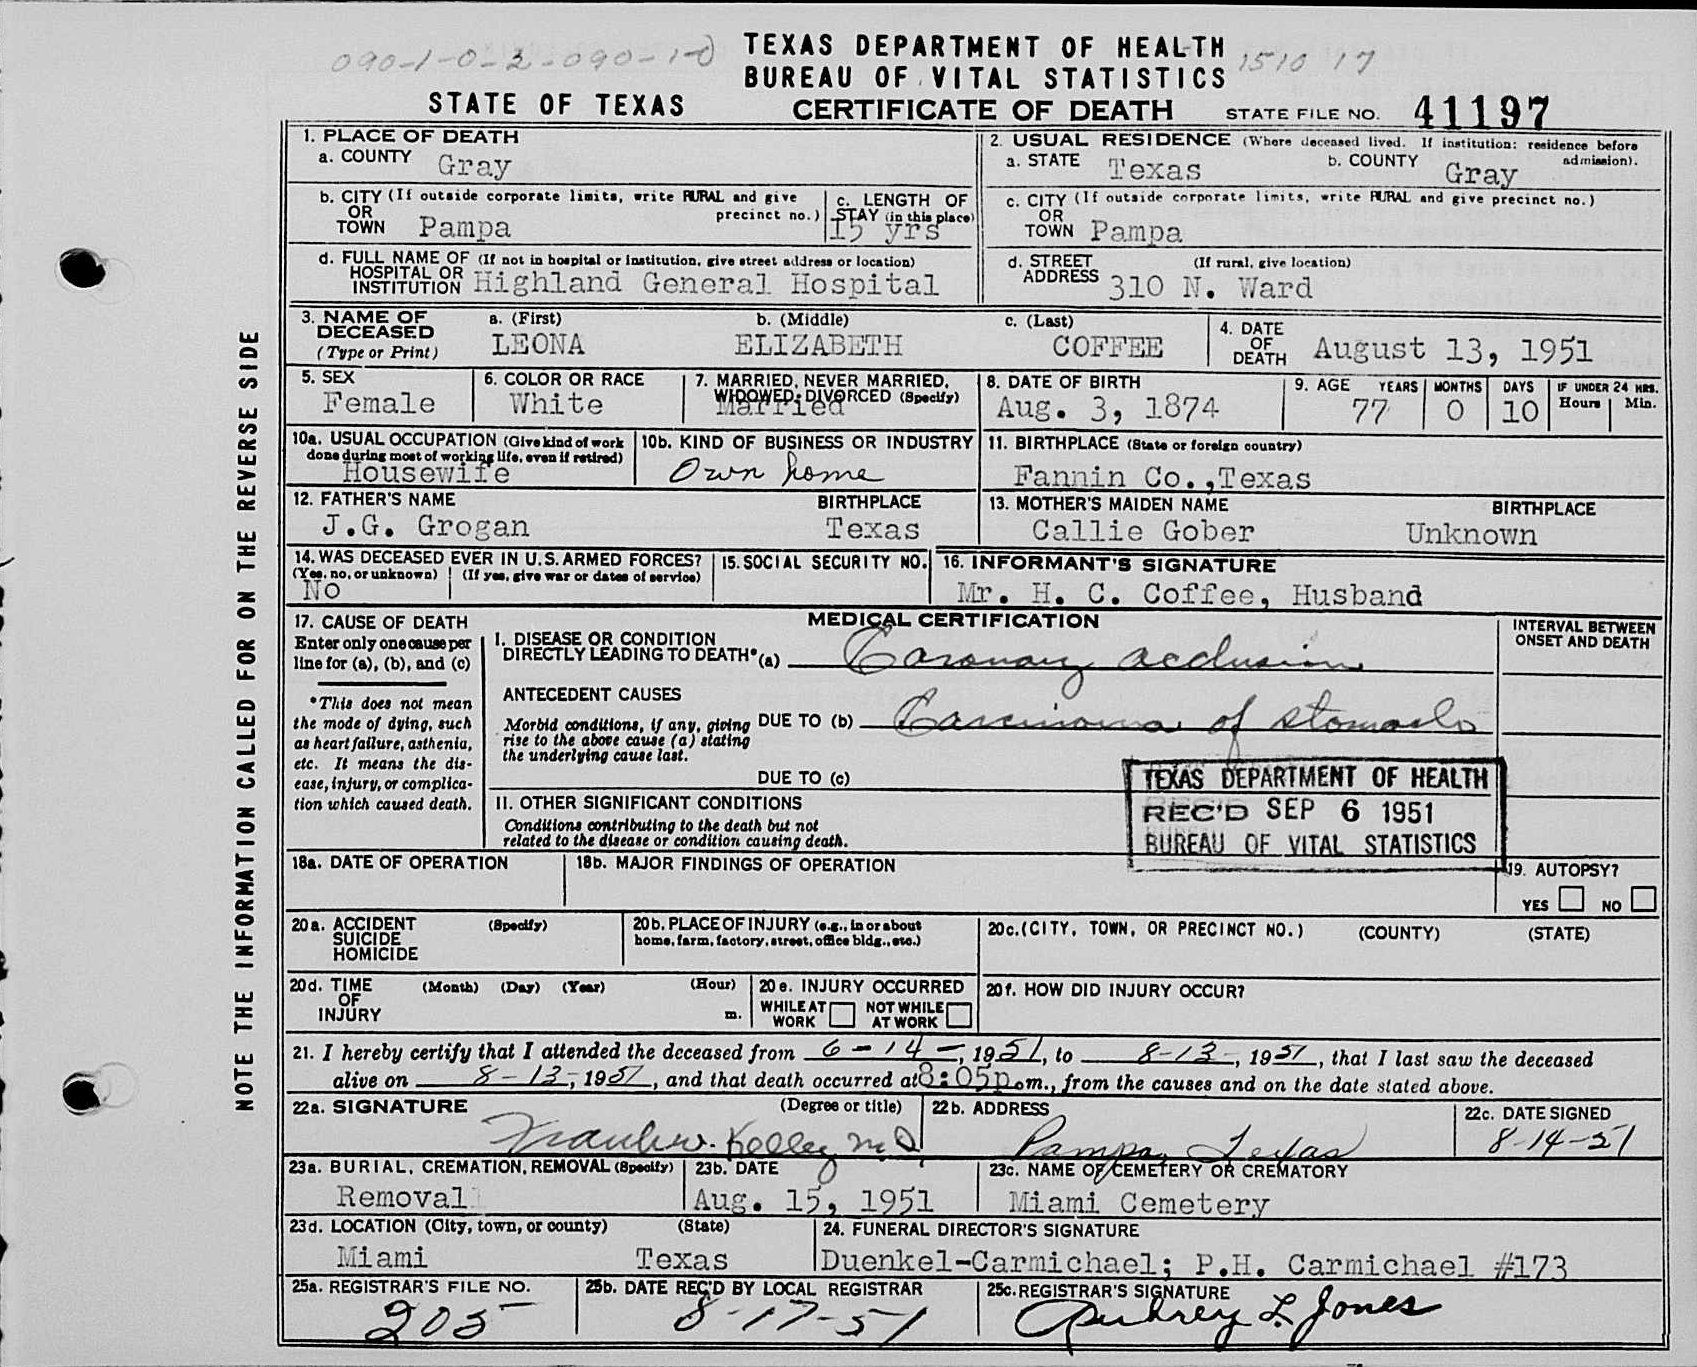 090-1-0-2-090-1-0
TEXAS DEPARTMENT OF HEALTH
1510 17
BUREAU OF VITAL STATISTICS
STATE OF TEXAS
CERTIFICATE OF DEATH
STATE FILE NO. 41197
NOTE THE INFORMATION CALLED FOR ON THE REVERSE SIDE
1. PLACE OF DEATH
a. COUNTY Gray
2. USUAL RESIDENCE (Where deceased lived. If institution: residence before admission).
a. STATE Texas b. COUNTY Gray
b. CITY (If outside corporate limits, write RURAL and give precinct no.)
OR
TOWN Pampa
c. LENGTH OF
STAY (in this place)
15 yrs
c. CITY (If outside corporate limits, write RURAL and give precinct no.)
OR
TOWN Pampa
d. FULL NAME OF (If not in hospital or institution, give street address or location)
HOSPITAL OR
INSTITUTION Highland General Hospital
d. STREET (If rural, give location)
ADDRESS 310 N. Ward
3. NAME OF DECEASED
(Type or Print)
a. (First) b. (Middle) c. (Last)
LEONA ELIZABETH COFFEE
4. DATE OF DEATH August 13, 1951
5. SEX
Female
6. COLOR OR RACE
White
7. MARRIED, NEVER MARRIED,
WIDOWED, DIVORCED (Specify)
Married
8. DATE OF BIRTH
Aug. 3, 1874
9. AGE YEARS MONTHS DAYS IF UNDER 24 HRS.
Hours Min.
77 0 10
10a. USUAL OCCUPATION (Give kind of work
done during most of working life, even if retired)
Housewife
10b. KIND OF BUSINESS OR INDUSTRY
Own home
11. BIRTHPLACE (State or foreign country)
Fannin Co.,Texas
12. FATHER'S NAME BIRTHPLACE
J.G. Grogan Texas
13. MOTHER'S MAIDEN NAME BIRTHPLACE
Callie Gober Unknown
14. WAS DECEASED EVER IN U.S. ARMED FORCES?
(Yes, no, or unknown) (If yes, give war or dates of service)
No
15. SOCIAL SECURITY NO.
16. INFORMANT'S SIGNATURE
Mr. H. C. Coffee, Husband
17. CAUSE OF DEATH
Enter only one cause per
line for (a), (b), and (c)
*This does not mean
the mode of dying, such
as heart failure, asthenia,
etc. It means the dis-
ease, injury, or complica-
tion which caused death.
MEDICAL CERTIFICATION
INTERVAL BETWEEN
ONSET AND DEATH
I. DISEASE OR CONDITION
DIRECTLY LEADING TO DEATH*(a) Coronary occlusion
ANTECEDENT CAUSES
Morbid conditions, if any, giving
rise to the above cause (a) stating
the underlying cause last.
DUE TO (b) Carcinoma of stomach
DUE TO (c)
II. OTHER SIGNIFICANT CONDITIONS
Conditions contributing to the death but not
related to the disease or condition causing death.
TEXAS DEPARTMENT OF HEALTH
REC'D SEP 6 1951
BUREAU OF VITAL STATISTICS
18a. DATE OF OPERATION
18b. MAJOR FINDINGS OF OPERATION
19. AUTOPSY?
YES NO
20a. ACCIDENT (Specify)
SUICIDE
HOMICIDE
20b. PLACE OF INJURY (e.g., in or about
home, farm, factory, street, office bldg., etc.)
20c. (CITY, TOWN, OR PRECINCT NO.) (COUNTY) (STATE)
20d. TIME (Month) (Day) (Year) (Hour)
OF
INJURY m.
20e. INJURY OCCURRED
WHILE AT WORK NOT WHILE AT WORK
20f. HOW DID INJURY OCCUR?
21. I hereby certify that I attended the deceased from 6-14-, 1951, to 8-13-, 1951, that I last saw the deceased
alive on 8-13-, 1951, and that death occurred at 8:05p.m., from the causes and on the date stated above.
22a. SIGNATURE (Degree or title)
Frank W. Kelley M.D.
22b. ADDRESS
Pampa, Texas
22c. DATE SIGNED
8-14-51
23a. BURIAL, CREMATION, REMOVAL (Specify)
Removal
23b. DATE
Aug. 15, 1951
23c. NAME OF CEMETERY OR CREMATORY
Miami Cemetery
23d. LOCATION (City, town, or county) (State)
Miami Texas
24. FUNERAL DIRECTOR'S SIGNATURE
Duenkel-Carmichael; P.H. Carmichael #173
25a. REGISTRAR'S FILE NO.
205
25b. DATE REC'D BY LOCAL REGISTRAR
8-17-51
25c. REGISTRAR'S SIGNATURE
Aubrey L. Jones